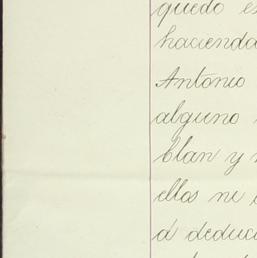 quedo es
hacienda
Antonio
alguno
blan y
ellos ni
á deduci